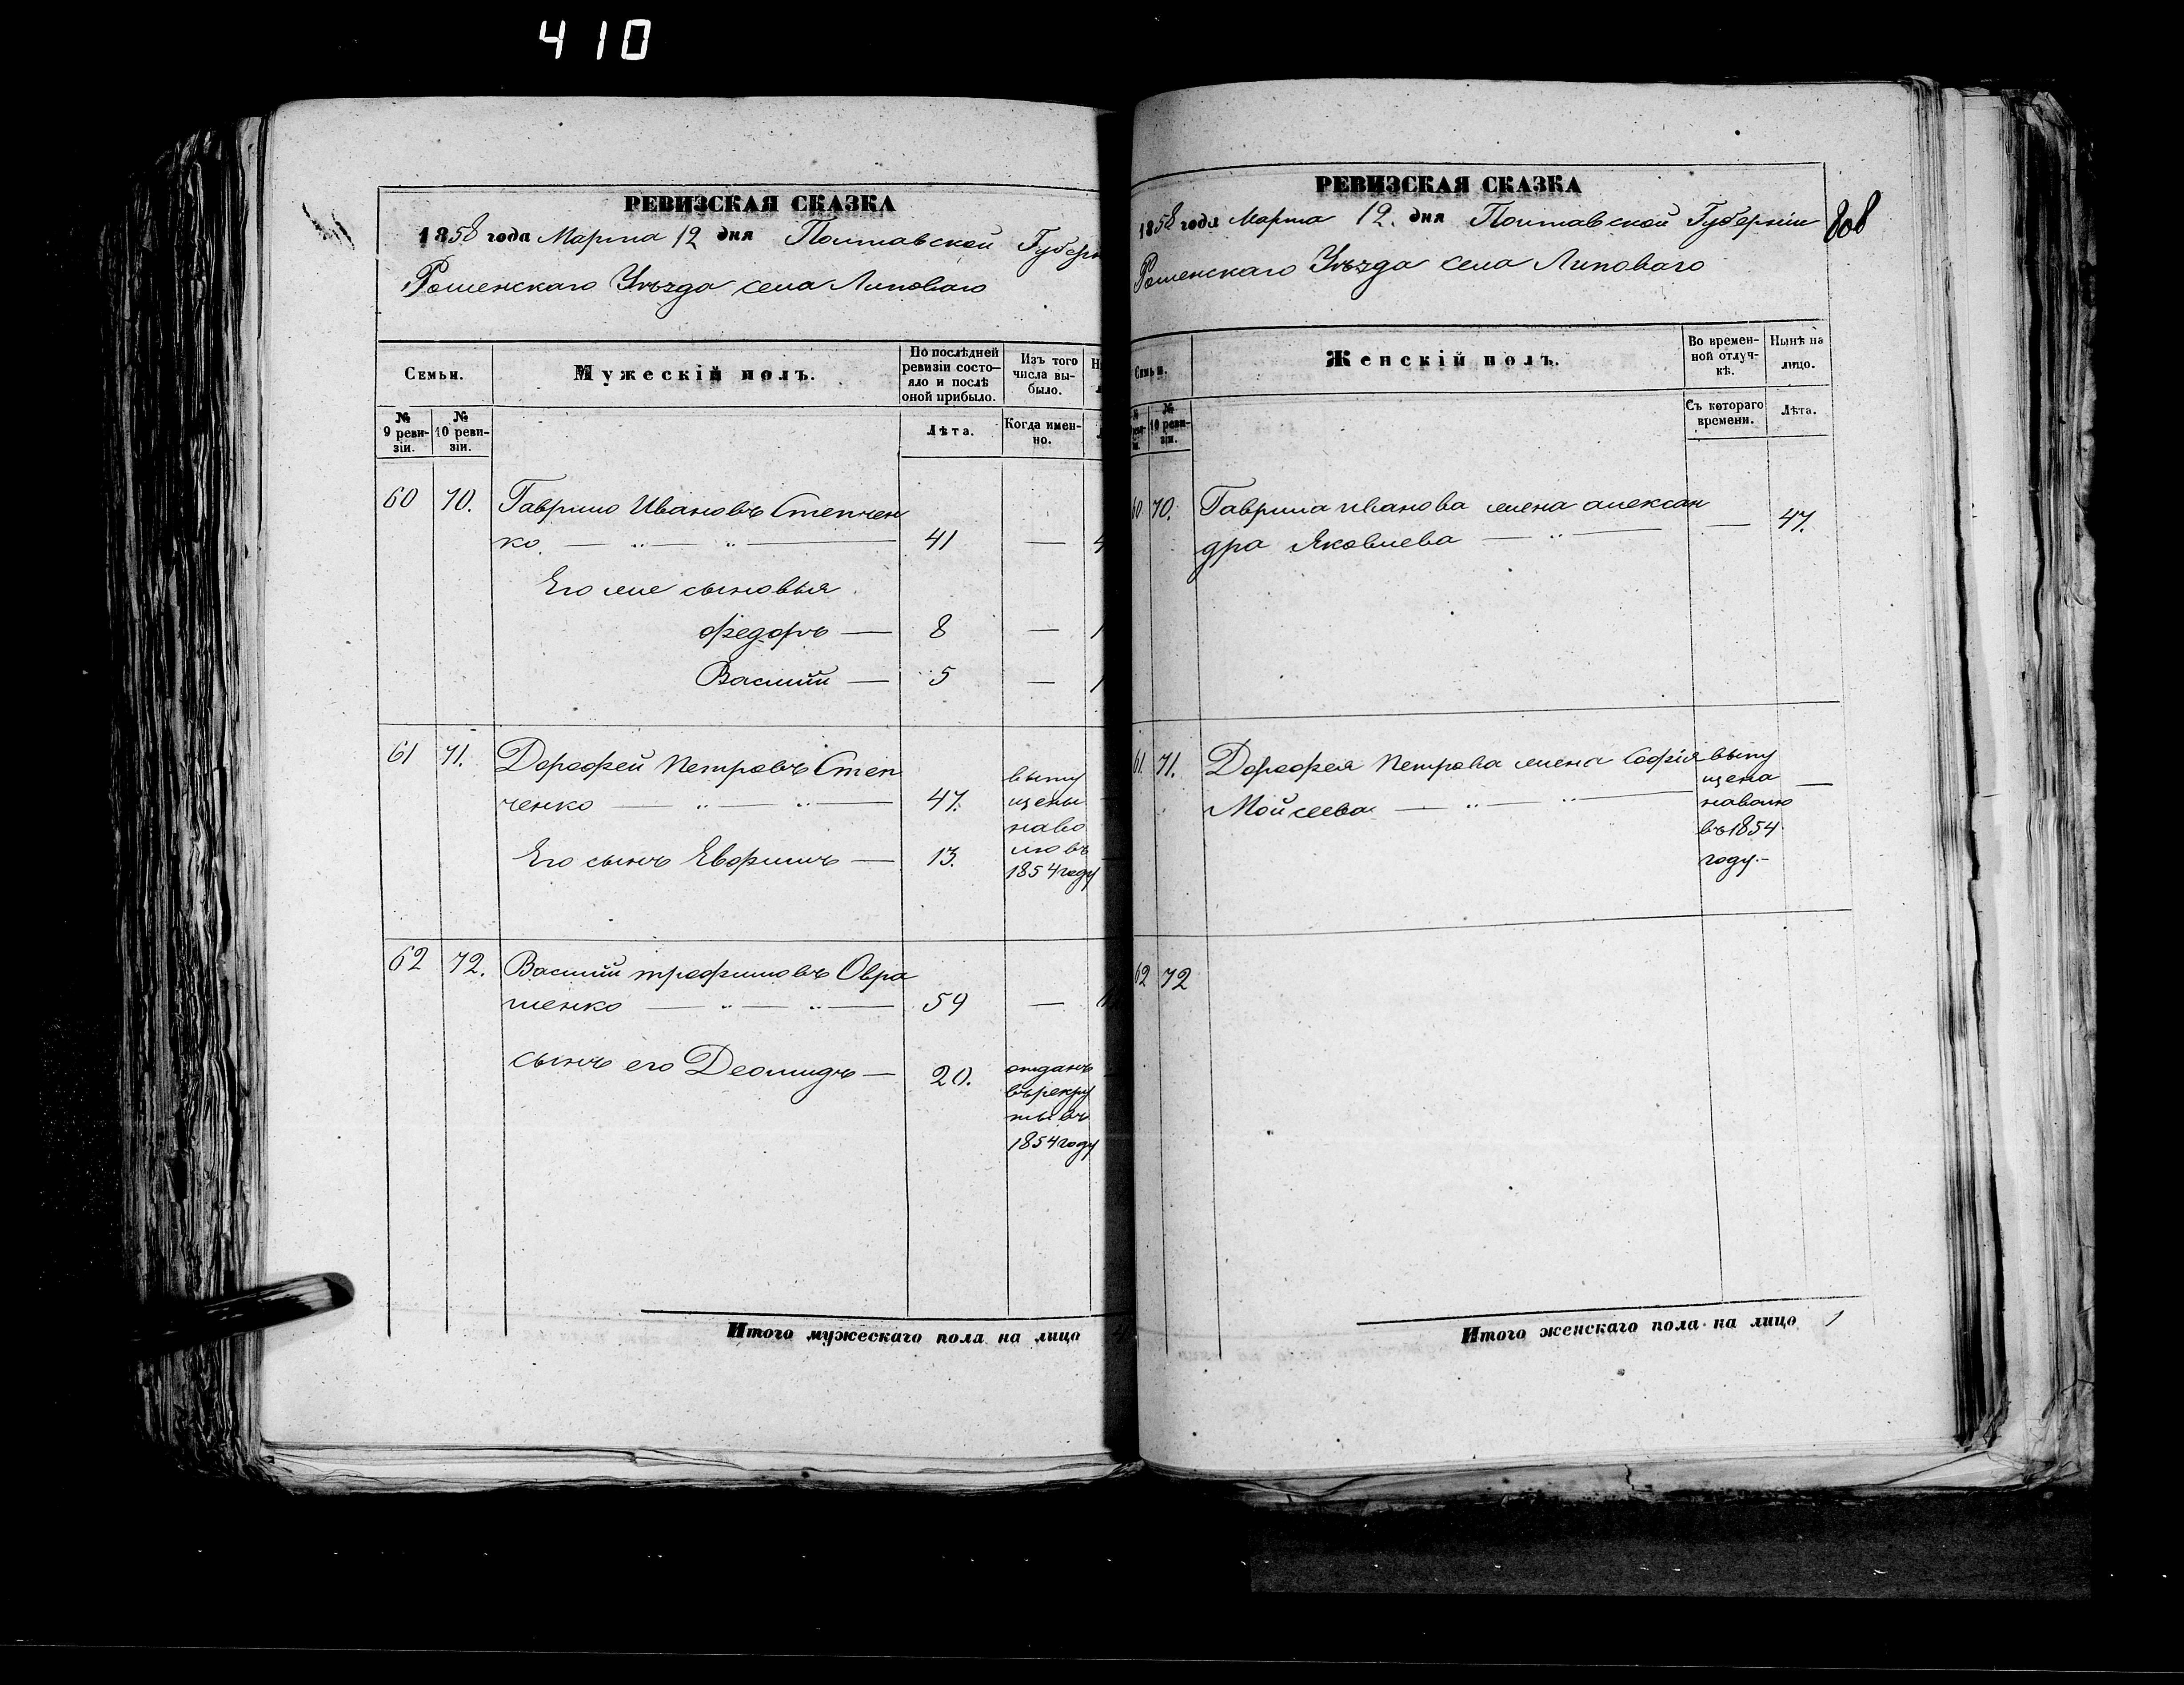 410
РЕВИЗСКАЯ СКАЗКА
1858 года Марта 12 дня Полтавской Губерн
Роменскаго Уѣзда села Липоваго
Семьи.
Мужескій полъ.
По послѣдней ревизіи состо-
яло и послѣ
оной прибыло.
Изъ того
числа вы-
было.
№
9 реви-
зіи.
№
10 реви-
зіи.
Лѣта.
Когда имен-
но.
60 70. Гаврило Ивановъ Степчен
ко 41 —
Его же сыновья
Федоръ — 8 —
Василій — 5 —
61 71. Дорофей Петровъ Степ
ченко 47.
Его сынъ Евфимъ — 13.
выпу
щены
наво
лю въ
1854 году
62 72. Василій трофимовъ Овра
менко 59 —
сынъ его Деомидъ — 20.
отданъ
върекру
ты въ
1854 году
Итого мужескаго пола на лицо
РЕВИЗСКАЯ СКАЗКА
1858 года Марта 12. дня Полтавской Губерніи
808
Роменскаго Уѣзда села Липоваго
Семьи.
Женскій полъ.
Во времен-
ной отлуч-
кѣ.
Нынѣ на
лицо.
№
10 реви-
зіи.
Съ котораго
времени.
Лѣта.
60 70. Гаврила иванова жена алексан
дра Яковлева — 47.
61. 71. Дорофея Петрова жена Софія
Мойсеева
выпу
щена
наволю
въ 1854
году. —
62 72
Итого женскаго пола на лицо 1